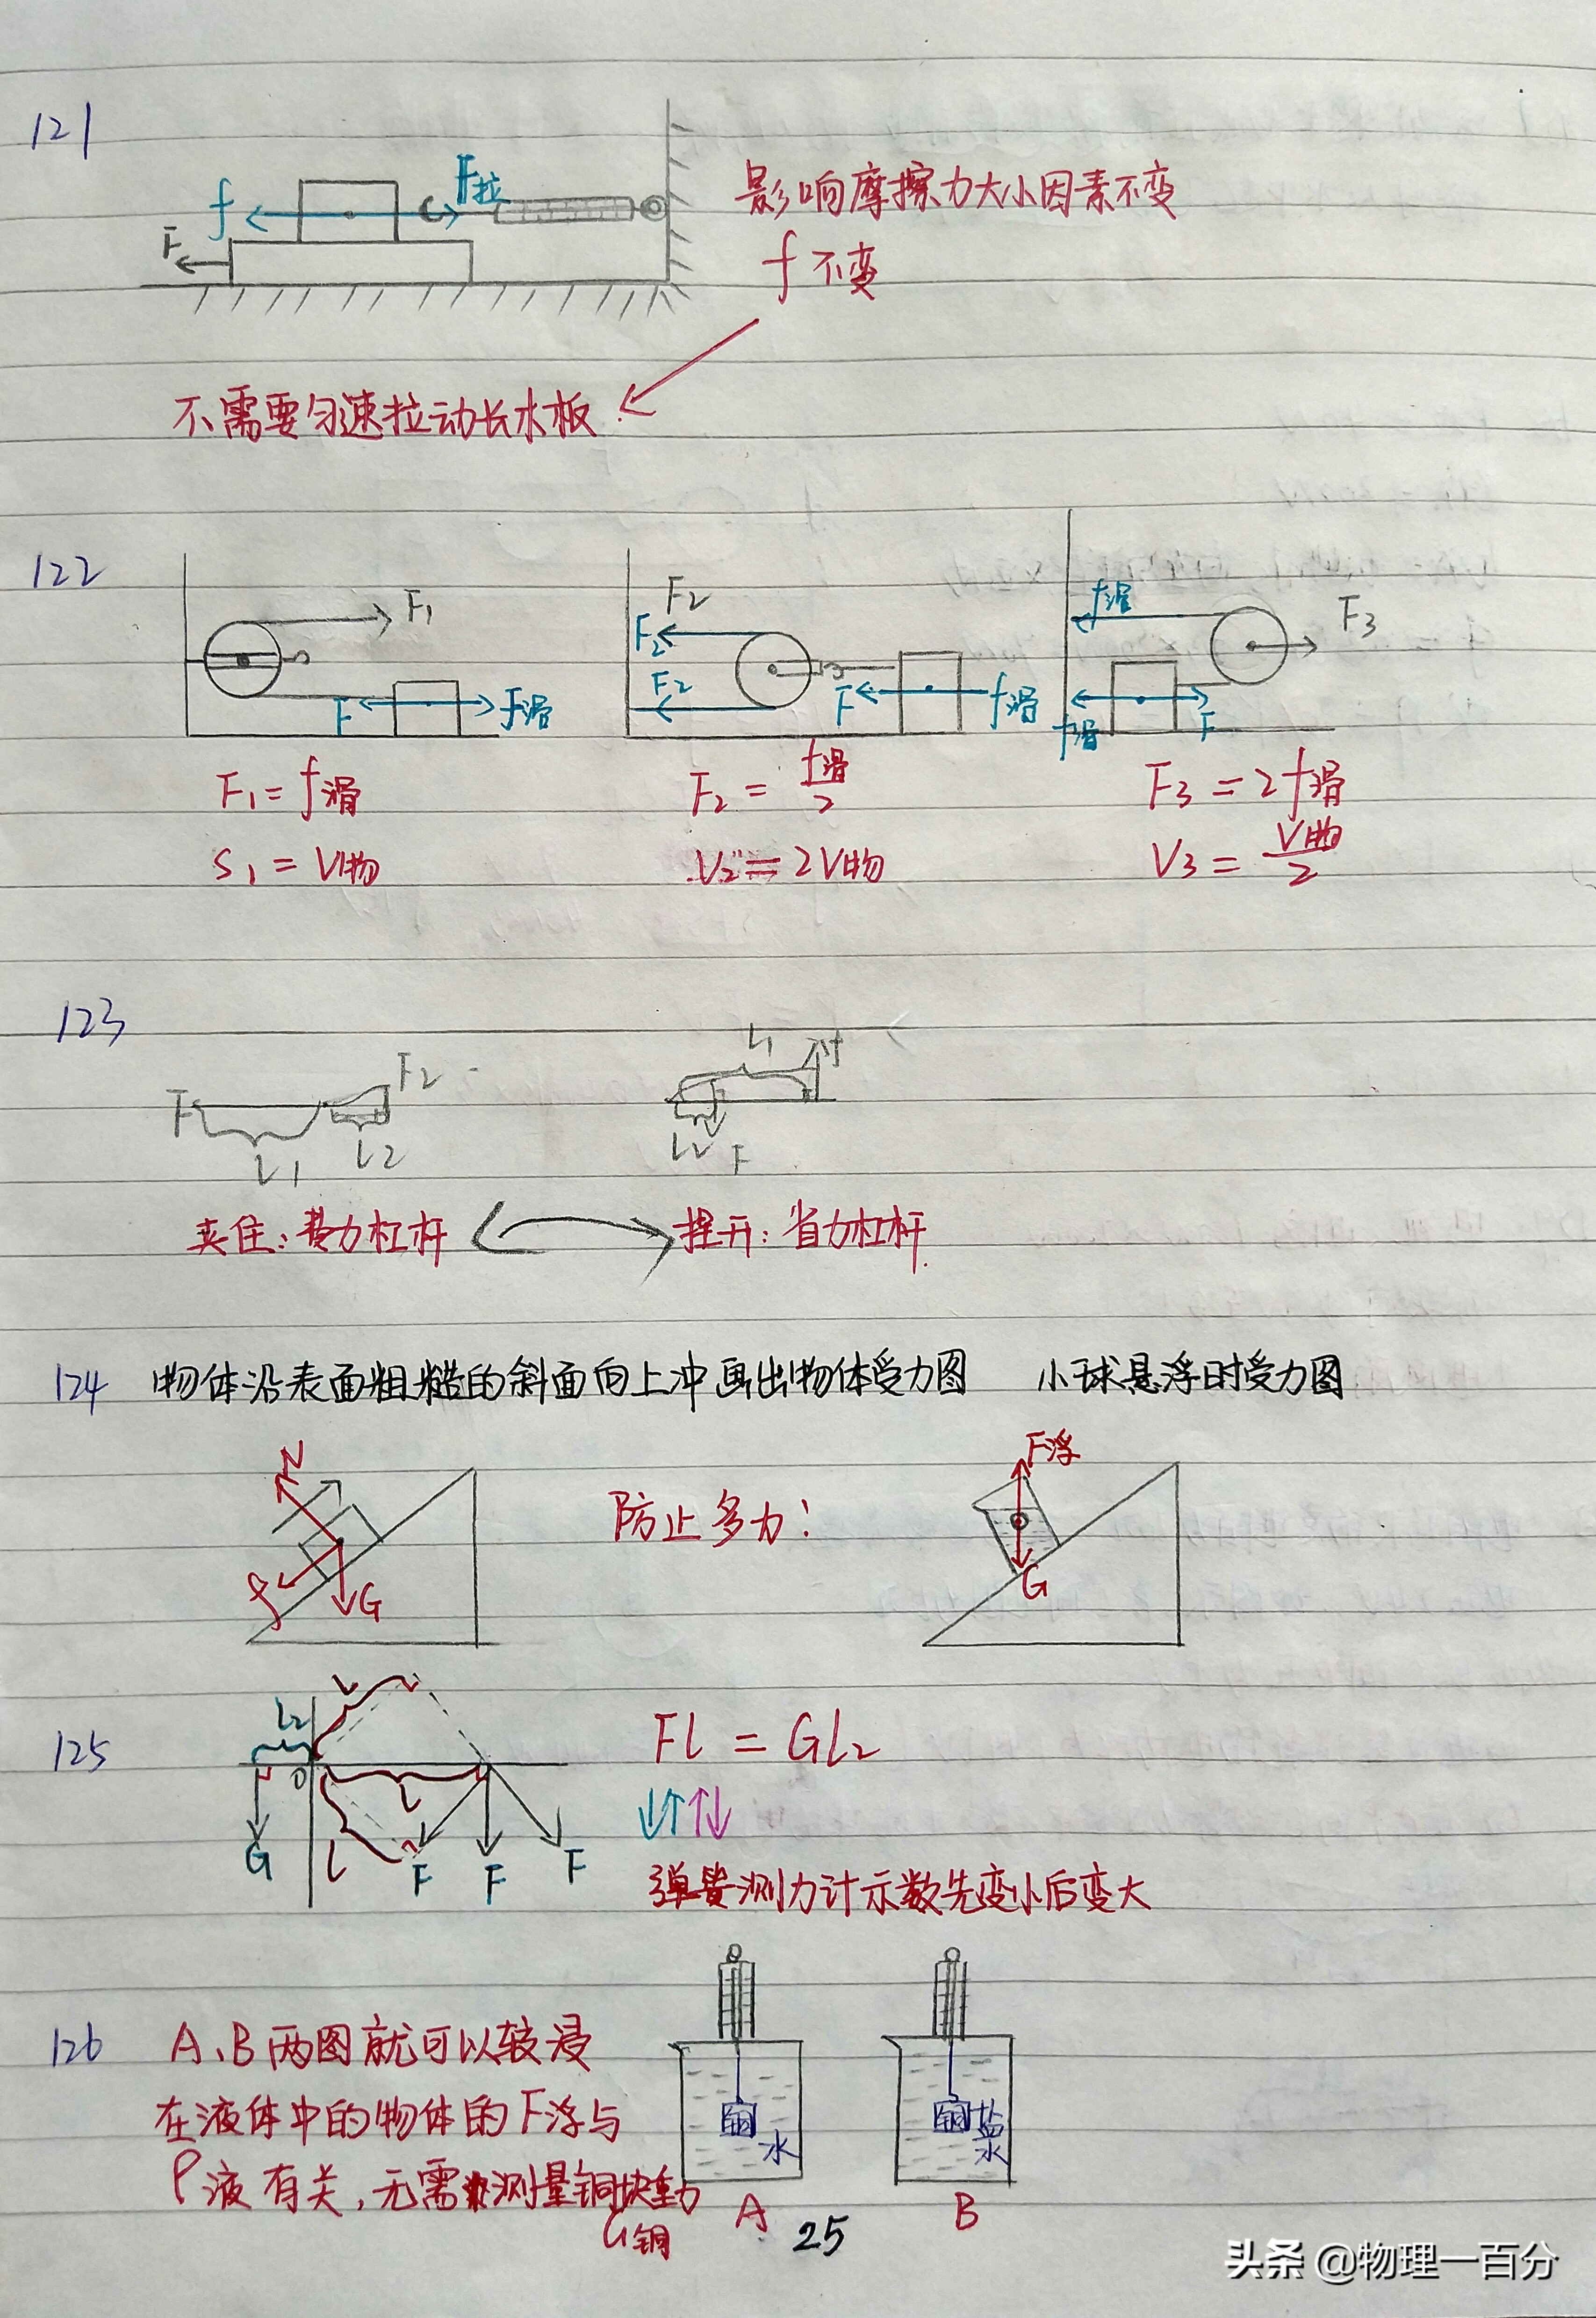 121
f F拉
F
影响摩擦力大小因素不变
f 不变
不需要匀速拉动长木板
122
F1
F f滑
F2
F2
F2
F f滑
f滑
F3
f滑 F
F1 = f滑
F2 = f滑/2
F3 = 2f滑
S1 = V物
V2 = 2V物
V3 = V物/2
123
F F2
L1 L2
L1
L2 F
夹住：费力杠杆
捏开：省力杠杆
124 物体沿表面粗糙的斜面向上冲画出物体受力图 小球悬浮时受力图
N
f G
防止多力！
F浮
G
125
L2 L
O L
G L F F F
Fl = Gl2
↓↑↑↓
弹簧测力计示数先变小后变大
126 A、B两图就可以较浸
在液体中的物体的F浮与
ρ液有关，无需测量铜块重力
G铜
铜 水
铜 盐水
A B
25
头条 @物理一百分